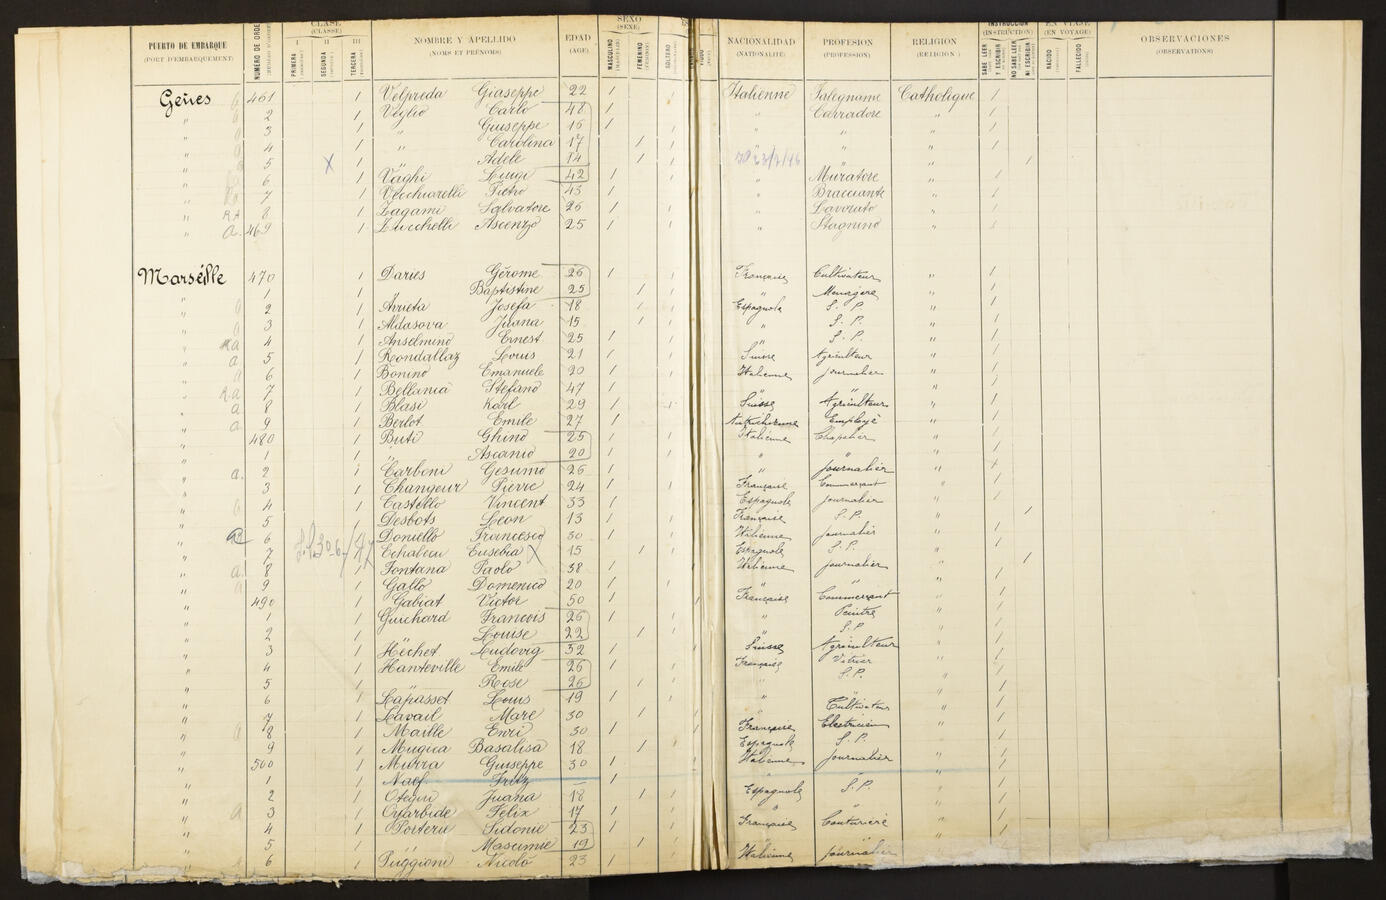 PUERTO DE EMBARQUE (PORT D'EMBARQUEMENT) NÚMERO DE ORDEN CLASE (CLASSE) I PRIMERA II SEGUNDA III TERCERA NOMBRE Y APELLIDO (NOMS ET PRÉNOMS) EDAD (AGE) SEXO (SEXE) MASCULINO FEMENINO SOLTERO NACIONALIDAD (NATIONALITÉ) PROFESION (PROFESSION) RELIGION (RELIGION) INSTRUCCION (INSTRUCTION) SABE LEER Y ESCRIBIR NO SABE LEER NI ESCRIBIR EN VIAJE (EN VOYAGE) NACIDO FALLECIDO OBSERVACIONES (OBSERVATIONS)
Gênes 461 / Velpreda Giuseppe 22 / Italienne Falegname Catholique /
" 2 / Veglio Carlo 48 / " Carradore " /
" 3 / " Giuseppe 16 / / " " " /
" 4 / " Carolina 17 / / " " /
" 5 X / " Adele 14 / / " " /
" 6 / Vaghi Luigi 42 / " Muratore " /
" 7 / Vecchiarelli Pietro 43 / " Bracciante " /
" R.A 8 / Zagami Salvatore 26 / / " Lavorato " /
" a. 469 / Zucchelli Ascenzo 25 / / " Stagnino " /
Marseille 470 / Daries Gérome 26 / Française Cultivateur " /
" 1 / " Baptistine 25 / " Menagère " /
" 2 / Arrieta Josefa 18 / / Espagnole S. P. " /
" 3 / Aldasova Juana 15 / / " S. P. " /
" RA 4 / Anselmino Ernest 25 / / S. P. " /
" a 5 / Rondallaz Louis 21 / / Suisse Agriculteur " /
" 6 / Bonino Emanuele 20 / / Italienne journalier " /
" R.A 7 / Bellania Stefano 47 / " " " /
" a 8 / Blasi Karl 29 / / Suisse Agriculteur " /
" a 9 / Berlot Emile 27 / / Autrichienne Employé " /
" 480 / Buti Ghino 25 / / Italienne Chapelier " /
" 1 / " Ascanio 20 / / " " " /
" a. 2 / Carboni Gesumo 26 / / " journalier " /
" 3 / Changeur Pierre 24 / / Française Commerçant " /
" 4 / Castello Vincent 33 / / Espagnole journalier " /
" 5 / Desbots Leon 13 / / Française S. P. " /
" 6 / Doniello Francesco 30 / / Italienne journalier " /
" 7 / Echabeu Eusebia X 15 / / Espagnole S. P. " /
" a. 8 / Fontana Paolo 38 / / Italienne journalier " /
" 9 / Gallo Domenico 20 / / " " " /
" 490 / Gabiat Victor 50 / / Française Commerçant " /
" 1 / Guichard Francois 26 / " Peintre " /
" 2 / " Louise 22 / " S. P. " /
" 3 / Hechet Ludovig 32 / / Suisse Agriculteur " /
" 4 / Hanteville Emile 26 / Française Vitrier " /
" 5 / " Rose 26 / " S. P. " /
" 6 / Lapasset Louis 19 / / " " /
" 7 / Lavail Marc 30 / " Cultivateur " /
" 8 / Maille Enri 30 / Française Electricien " /
" 9 / Mugica Basalisa 18 / / Espagnole S. P. " /
" 500 / Murra Giuseppe 30 / / Italienne journalier " /
" 1 / Naef Fritz /
" 2 / Otegui Juana 18 / / Espagnole S. P. " /
" a 3 / Oyarbide Félix 17 / / " " " /
" 4 / Porterie Sidonie 23 / / Française Couturière " /
" 5 / " Mascimie 19 / / " " " /
" 6 / Puggioni Nicolo 23 / / Italienne journalier " /